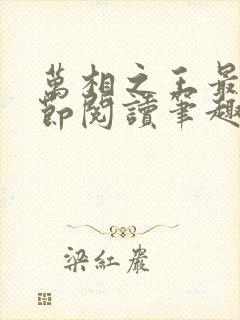 萬相之王最
節閱讀筆趣
梁紅巖